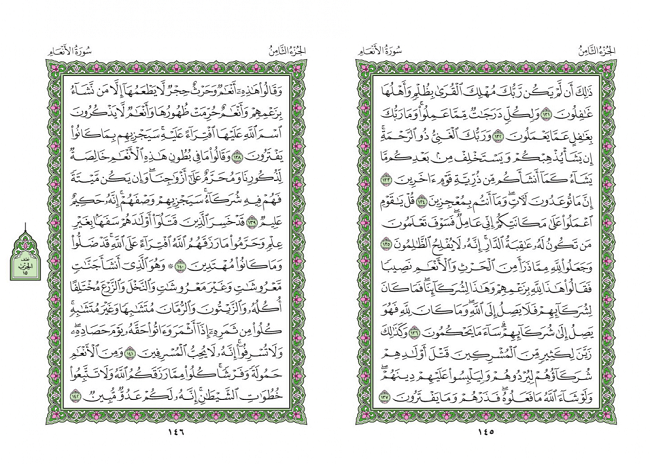 الجُزْءُ الثَّامِنُ سُورَةُ الأَنْعَام
ذَٰلِكَ أَن لَّمْ يَكُن رَّبُّكَ مُهْلِكَ ٱلْقُرَىٰ بِظُلْمٍ وَأَهْلُهَا
غَٰفِلُونَ ١٣١ وَلِكُلٍّ دَرَجَٰتٌ مِّمَّا عَمِلُوا۟ ۚ وَمَا رَبُّكَ
بِغَٰفِلٍ عَمَّا يَعْمَلُونَ ١٣٢ وَرَبُّكَ ٱلْغَنِىُّ ذُو ٱلرَّحْمَةِ ۚ
إِن يَشَأْ يُذْهِبْكُمْ وَيَسْتَخْلِفْ مِنۢ بَعْدِكُم مَّا
يَشَآءُ كَمَآ أَنشَأَكُم مِّن ذُرِّيَّةِ قَوْمٍ ءَاخَرِينَ ١٣٣
إِنَّ مَا تُوعَدُونَ لَءَاتٍ ۖ وَمَآ أَنتُم بِمُعْجِزِينَ ١٣٤ قُلْ يَٰقَوْمِ
ٱعْمَلُوا۟ عَلَىٰ مَكَانَتِكُمْ إِنِّى عَامِلٌ ۖ فَسَوْفَ تَعْلَمُونَ
مَن تَكُونُ لَهُۥ عَٰقِبَةُ ٱلدَّارِ ۗ إِنَّهُۥ لَا يُفْلِحُ ٱلظَّٰلِمُونَ ١٣٥
وَجَعَلُوا۟ لِلَّهِ مِمَّا ذَرَأَ مِنَ ٱلْحَرْثِ وَٱلْأَنْعَٰمِ نَصِيبًا
فَقَالُوا۟ هَٰذَا لِلَّهِ بِزَعْمِهِمْ وَهَٰذَا لِشُرَكَآئِنَا ۖ فَمَا كَانَ
لِشُرَكَآئِهِمْ فَلَا يَصِلُ إِلَى ٱللَّهِ ۖ وَمَا كَانَ لِلَّهِ فَهُوَ
يَصِلُ إِلَىٰ شُرَكَآئِهِمْ ۗ سَآءَ مَا يَحْكُمُونَ ١٣٦ وَكَذَٰلِكَ
زَيَّنَ لِكَثِيرٍ مِّنَ ٱلْمُشْرِكِينَ قَتْلَ أَوْلَٰدِهِمْ
شُرَكَآؤُهُمْ لِيُرْدُوهُمْ وَلِيَلْبِسُوا۟ عَلَيْهِمْ دِينَهُمْ ۖ
وَلَوْ شَآءَ ٱللَّهُ مَا فَعَلُوهُ ۖ فَذَرْهُمْ وَمَا يَفْتَرُونَ ١٣٧
١٤٥
الجُزْءُ الثَّامِنُ سُورَةُ الأَنْعَام
وَقَالُوا۟ هَٰذِهِۦٓ أَنْعَٰمٌ وَحَرْثٌ حِجْرٌ لَّا يَطْعَمُهَآ إِلَّا مَن نَّشَآءُ
بِزَعْمِهِمْ وَأَنْعَٰمٌ حُرِّمَتْ ظُهُورُهَا وَأَنْعَٰمٌ لَّا يَذْكُرُونَ
ٱسْمَ ٱللَّهِ عَلَيْهَا ٱفْتِرَآءً عَلَيْهِ ۚ سَيَجْزِيهِم بِمَا كَانُوا۟
يَفْتَرُونَ ١٣٨ وَقَالُوا۟ مَا فِى بُطُونِ هَٰذِهِ ٱلْأَنْعَٰمِ خَالِصَةٌ
لِّذُكُورِنَا وَمُحَرَّمٌ عَلَىٰٓ أَزْوَٰجِنَا ۖ وَإِن يَكُن مَّيْتَةً
فَهُمْ فِيهِ شُرَكَآءُ ۚ سَيَجْزِيهِمْ وَصْفَهُمْ ۚ إِنَّهُۥ حَكِيمٌ
عَلِيمٌ ١٣٩ قَدْ خَسِرَ ٱلَّذِينَ قَتَلُوٓا۟ أَوْلَٰدَهُمْ سَفَهًۢا بِغَيْرِ
عِلْمٍ وَحَرَّمُوا۟ مَا رَزَقَهُمُ ٱللَّهُ ٱفْتِرَآءً عَلَى ٱللَّهِ ۚ قَدْ ضَلُّوا۟
وَمَا كَانُوا۟ مُهْتَدِينَ ١٤٠ ۞ وَهُوَ ٱلَّذِىٓ أَنشَأَ جَنَّٰتٍ
مَّعْرُوشَٰتٍ وَغَيْرَ مَعْرُوشَٰتٍ وَٱلنَّخْلَ وَٱلزَّرْعَ مُخْتَلِفًا
أُكُلُهُۥ وَٱلزَّيْتُونَ وَٱلرُّمَّانَ مُتَشَٰبِهًا وَغَيْرَ مُتَشَٰبِهٍ ۚ
كُلُوا۟ مِن ثَمَرِهِۦٓ إِذَآ أَثْمَرَ وَءَاتُوا۟ حَقَّهُۥ يَوْمَ حَصَادِهِۦ ۖ
وَلَا تُسْرِفُوٓا۟ ۚ إِنَّهُۥ لَا يُحِبُّ ٱلْمُسْرِفِينَ ١٤١ وَمِنَ ٱلْأَنْعَٰمِ
حَمُولَةً وَفَرْشًا ۚ كُلُوا۟ مِمَّا رَزَقَكُمُ ٱللَّهُ وَلَا تَتَّبِعُوا۟
خُطُوَٰتِ ٱلشَّيْطَٰنِ ۚ إِنَّهُۥ لَكُمْ عَدُوٌّ مُّبِينٌ ١٤٢
١٤٦
الحِزْب
١٥